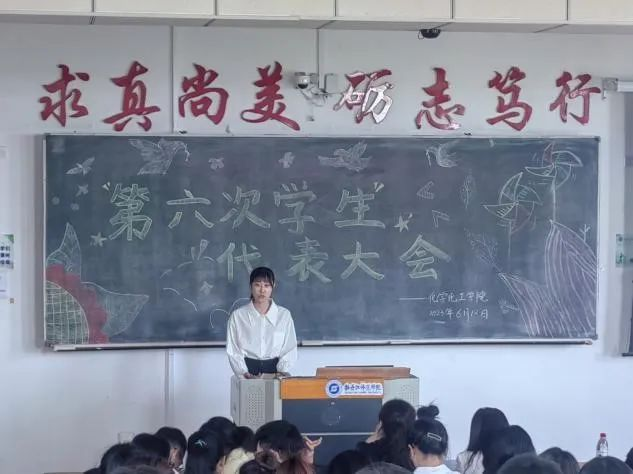 求真尚美 砺志笃行
“第六次学生”
代表大会
——化学化工学院
2023年6月18日